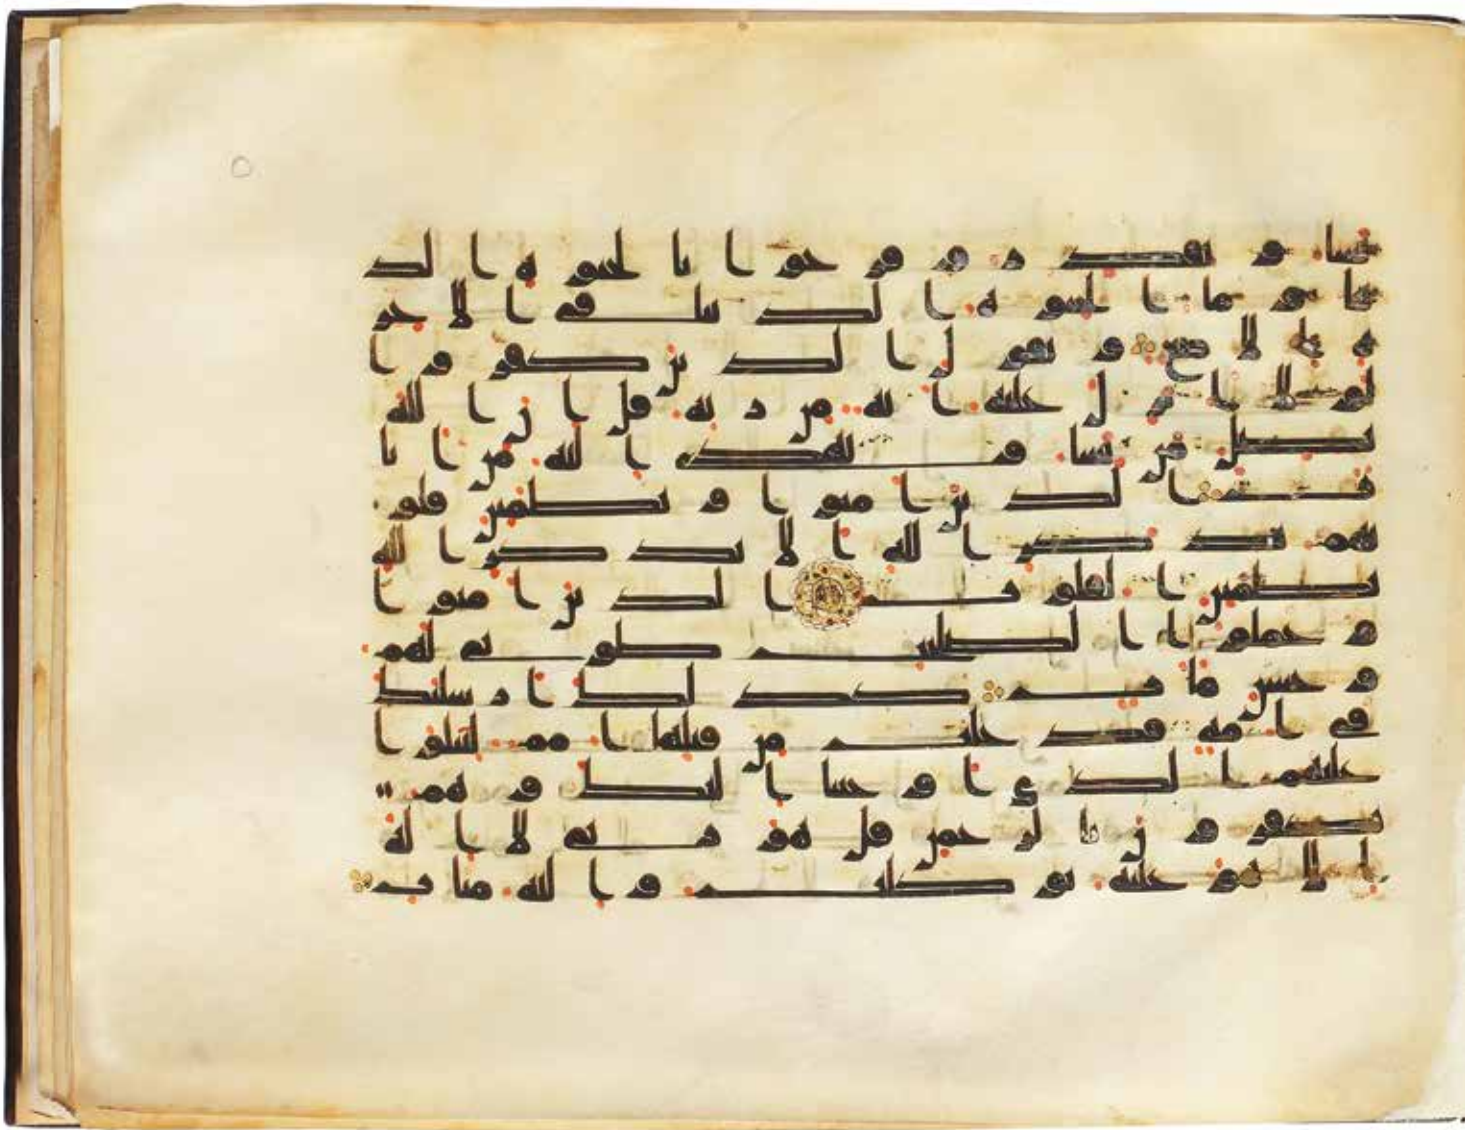 يشا و يقدر و فرحوا بالحيوة الد
نيا و ما الحيوة الدنيا في الاخر
ة الا متع و يقول الذين كفروا
لولا انزل عليه اية من ربه قل ان الله
يضل من يشا و يهدي اليه من انا
ب الذين امنوا و تطمين قلو
بهم بذكر الله الا بذكر الله
تطمين القلوب الذين امنوا
و عملوا الصلحت طوبى لهم
و حسن ماب كذلك ارسلنك
في امة قد خلت من قبلها امم لتتلوا
عليهم الذي اوحينا اليك و هم
يكفرون بالرحمن قل هو ربي لا اله
الا هو عليه توكلت و اليه متاب